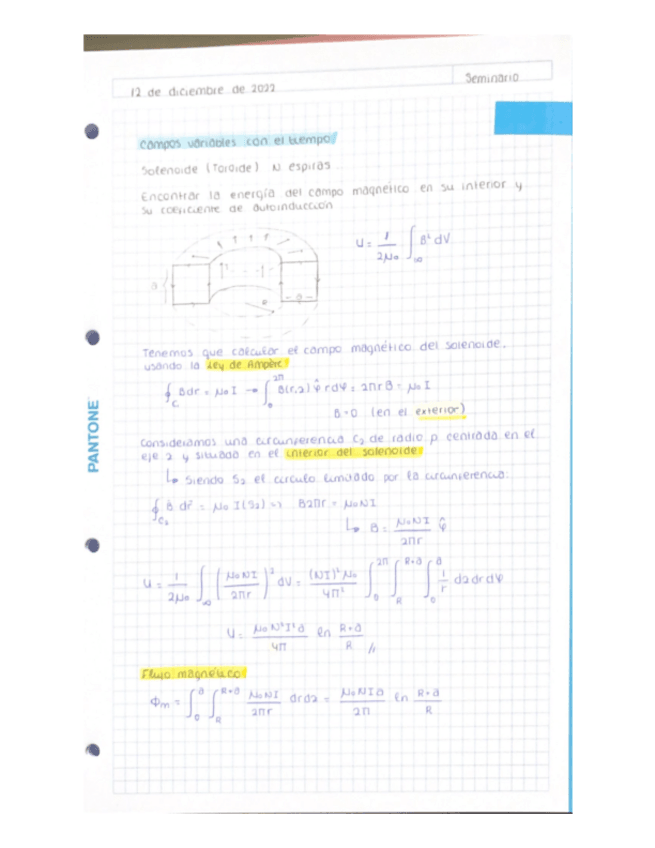 Seminario
12 de diciembre de 2022
Campos variables con el tiempo
Solenoide (Toroide) N espiras
Encontrar la energía del campo magnético en su interior y
su coeficiente de autoinducción
U = 1/2μ₀ ∫∞ B² dV
a
R
- a -
Tenemos que calcular el campo magnético del solenoide,
usando la Ley de Ampère
∮c B dr = μ₀ I → ∫₀^2π B(r,z) φ̂ r dφ = 2πr B = μ₀ I
B=0 (en el exterior)
Consideramos una circunferencia C₂ de radio ρ centrada en el
eje z y situada en el interior del solenoide
↳ Siendo S₂ el círculo limitado por la circunferencia:
∮c₂ B dr = μ₀ I(S₂) => B2πr = μ₀NI
↳ B = μ₀NI/2πr φ̂
U = 1/2μ₀ ∫∞ (μ₀NI/2πr)² dV = (NI)² μ₀/4π² ∫₀^2π ∫_R^R+a ∫₀^a 1/r dz dr dφ
U = μ₀N²I²a/4π ln R+a/R //
Flujo magnético
Φm = ∫₀^a ∫_R^R+a μ₀NI/2πr dr dz = μ₀NIa/2π ln R+a/R
PANTONE